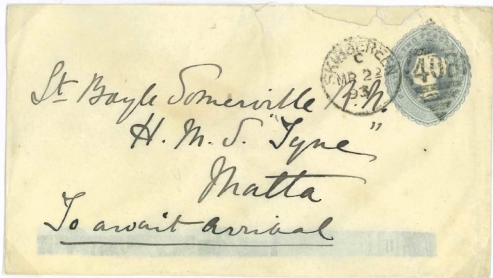 SKIBBEREEN
C
MR 22
93
406
Lt Boyle Somerville R.N.
H. M. S. Tyne
"
Malta
To await arrival